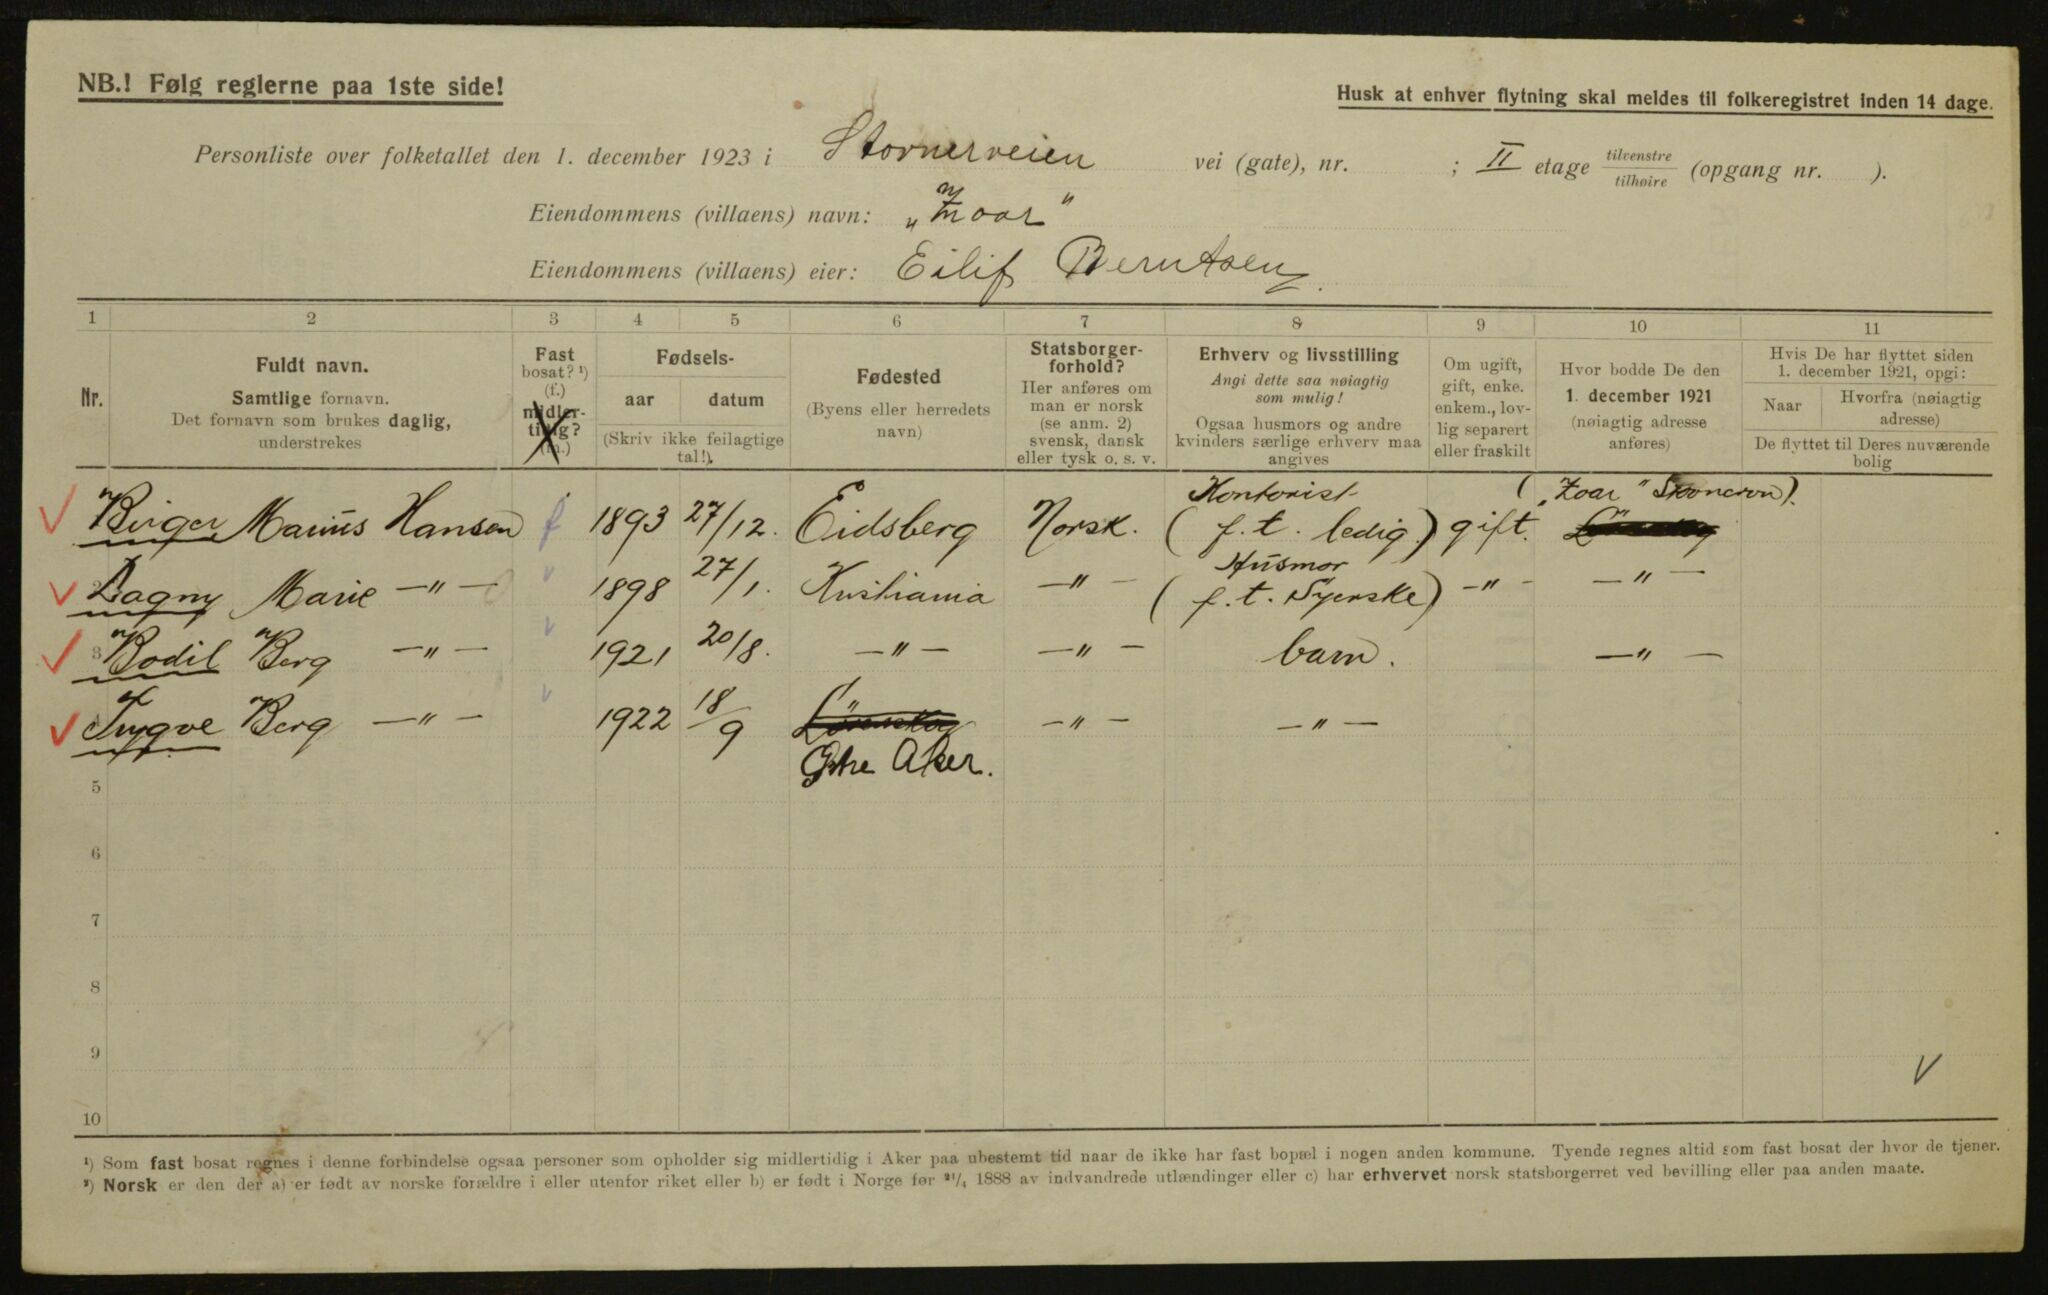 NB.! Følg reglerne paa 1ste side!
Husk at enhver flytning skal meldes til folkeregistret inden 14 dage.
Personliste over folketallet den 1. december 1923 i Stovnerveien vei (gate), nr. ; II etage tilvenstre/tilhøire (opgang nr. ).
Eiendommens (villaens) navn: „Zoar"
Eiendommens (villaens) eier: Eilif Berntsen.
1 2 3 4 5 6 7 8 9 10 11
Nr.
Fuldt navn.
Samtlige fornavn.
Det fornavn som brukes daglig,
understrekes
Fast
bosat? ¹)
(f.)
midler-
tidig?
(m.)
Fødsels-
aar datum
(Skriv ikke feilagtige
tal!).
Fødested
(Byens eller herredets
navn)
Statsborger-
forhold?
Her anføres om
man er norsk
(se anm. 2)
svensk, dansk
eller tysk o. s. v.
Erhverv og livsstilling
Angi dette saa nøiagtig
som mulig!
Ogsaa husmors og andre
kvinders særlige erhverv maa
angives
Om ugift,
gift, enke.
enkem., lov-
lig separert
eller fraskilt
Hvor bodde De den
1. december 1921
(nøiagtig adresse
anføres)
Hvis De har flyttet siden
1. december 1921, opgi:
Naar Hvorfra (nøiagtig
adresse)
De flyttet til Deres nuværende
bolig
Kontorist („Zoar"
Birger Marius Hansen f 1893 27/12. Eidsberg Norsk. (f. t. ledig.) gift.
Husmor
2 Dagny Marie —"— 1898 27/1. Kristiania —"— (f. t. Syerske) —"— —"—
3 Bodil Berg —"— 1921 20/8. —"— —"— barn. —"—
Trygve Berg —"— 1922 18/9 Lørenskog —"— —"—
Østre Aker.
5
6
7
8
9
V
10
¹) Som fast bosat regnes i denne forbindelse ogsaa personer som opholder sig midlertidig i Aker paa ubestemt tid naar de ikke har fast bopæl i nogen anden kommune. Tyende regnes altid som fast bosat der hvor de tjener.
²) Norsk er den der a) er født av norske forældre i eller utenfor riket eller b) er født i Norge før ²¹/₄ 1888 av indvandrede utlændinger eller c) har erhvervet norsk statsborgerret ved bevilling eller paa anden maate.